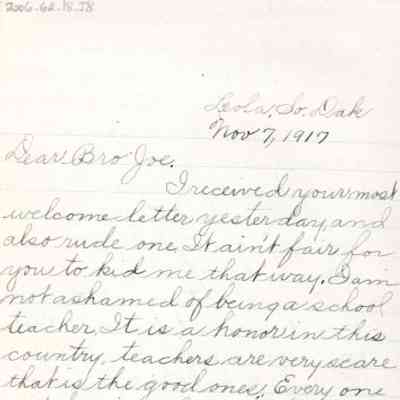 2006.62.18.78
Leola, So. Dak
Nov 7, 1917
Dear Bro Joe.
I received your most
welcome letter yesterday, and
also rude one. It ain't fair for
you to kid me that way. I am
not ashamed of being a school
teacher. It is a honor in this
country, teachers are very scare
that is the good ones. Every one